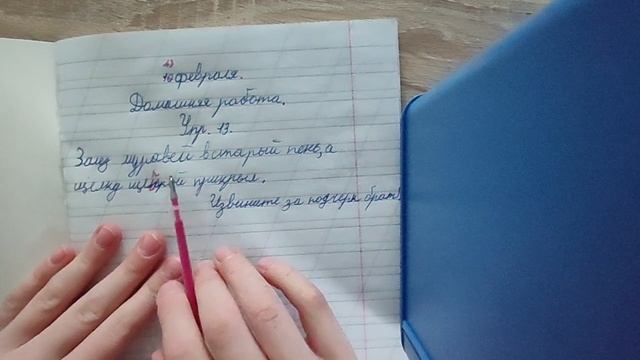 10 февраля.
Домашняя работа.
Упр. 13.
Залез муравей в старый пень, а
щелку щепкой прикрыл.
Извините за подчерк брата!